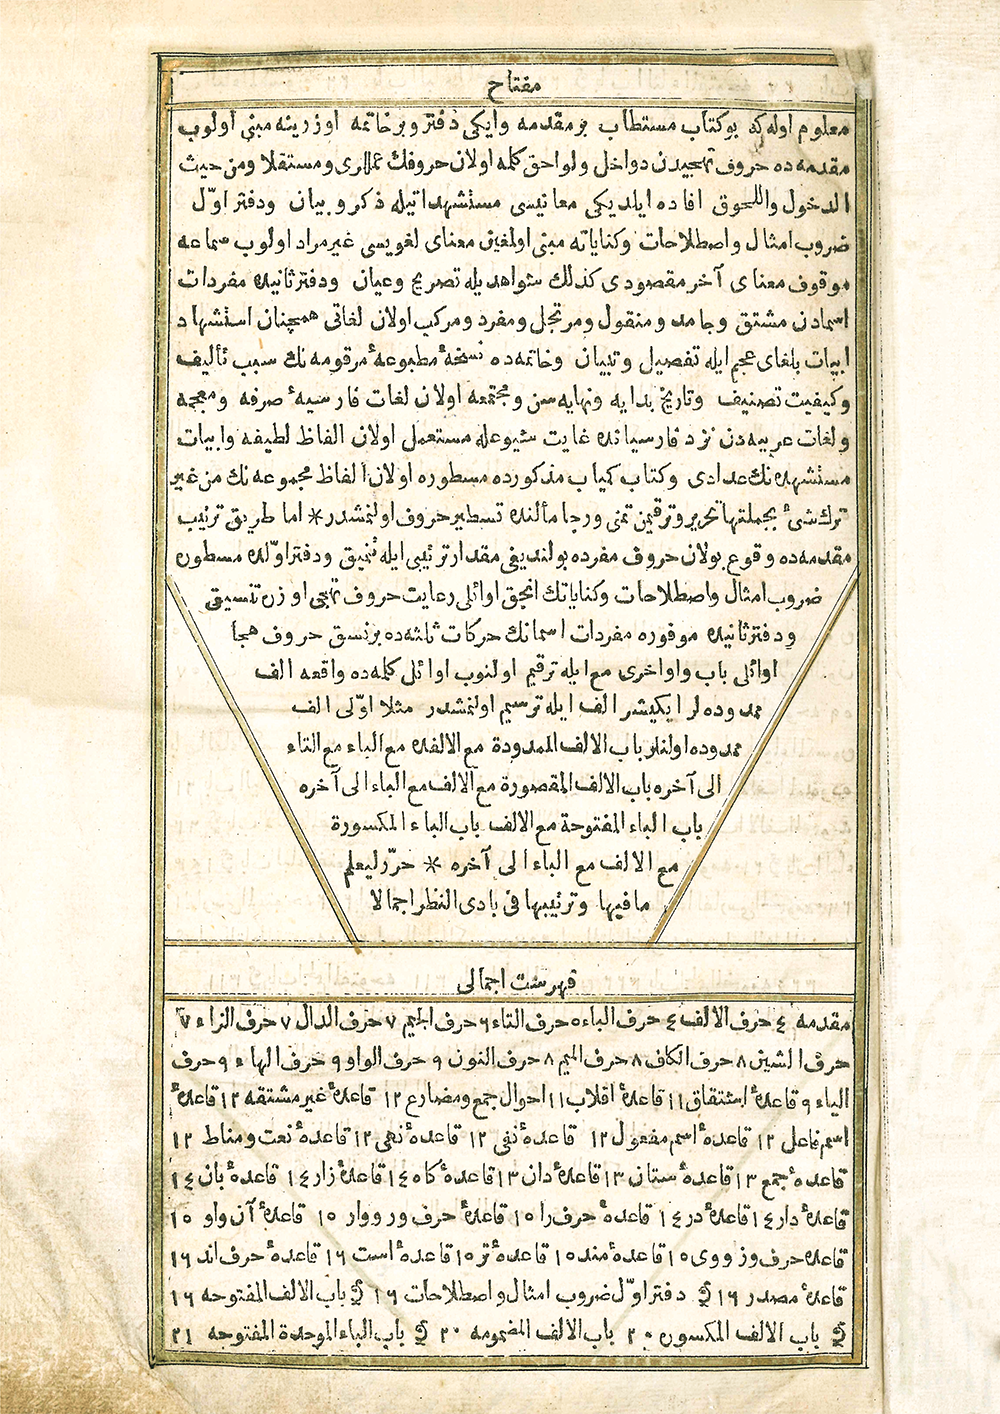 مفتاح
معلوم اوله كه بو كتاب مستطاب بر مقدمه وايكى دفتر وبر خاتمه اوزرينه مبنى اولوب
مقدمه ده حروف تهجيدن دواخل ولواحق كلمه اولان حروفك عمللرى ومستقلا ومن حيث
الدخول واللحوق افاده ايلديكى معانيسى مستشهداتيله ذكر وبيان ودفتر اوّل
ضروب امثال واصطلاحات وكناياته مبنى اولمغين معناى لغويسى غير مراد اولوب سماعه
موقوف معناى آخر مقصودى كذلك شواهديله تصريح وعيان ودفتر ثانيده مفردات
اسمادن مشتق وجامد ومنقول ومرتجل ومفرد ومركب اولان لغاتى همچنان استشهاد
ابيات بلغاى عجم ايله تفصيل وتبيان وخاتمه ده نسخهٔ مطبوعهٔ مرقومه نك سبب تأليف
وكيفيت تصنيف وتاريخ بدايه ونهايه سن ومجتمعه اولان لغات فارسيهٔ صرفه ومعجمه
ولغات عربيه دن نزد فارسيانده غايت شيوعله مستعمل اولان الفاظ لطيفه وابيات
مستشهده نك عدادى وكتاب كمياب مذكورده مسطوره اولان الفاظ مجموعه نك من غير
ترك شئ بجملتها تحرير وترقيمن تمنى ورجا مألنده تسطير حروف اولنمشدر * اما طريق ترتيب
مقدمه ده وقوع بولان حروف مفرده بولنديغى مقدار ترتيبى ايله تنميق ودفتر اوّلده مسطوره
ضروب امثال واصطلاحات وكناياتك انجق اوائلى رعايت حروف تهجى اوزره تنسيق
ودفتر ثانيده موفوره مفردات اسمانك حركات ثلثه ده بر نسق حروف هجا
اوائلى باب واواخرى مع ايله ترقيم اولنوب اوائل كلمه ده واقعه الف
ممدوده لر ايكيشر الف ايله ترسيم اولنمشدر مثلا اوّلى الف
ممدوده اولنلر باب الالف الممدودة مع الالفده مع الباء مع التاء
الى آخره باب الالف المقصورة مع الالف مع الباء الى آخره
باب الباء المفتوحة مع الالف باب الباء المكسورة
مع الالف مع الباء الى آخره * حرّر ليعلم
ما فيها وترتيبها فى بادى النظر اجمالا
فهرست اجمالى
مقدمه ٤ حرف الالف ٤ حرف الباء ٥ حرف التاء ٦ حرف الجيم ٧ حرف الدال ٧ حرف الزاء ٧
حرف الشين ٨ حرف الكاف ٨ حرف الميم ٨ حرف النون ٩ حرف الواو ٩ حرف الهاء ٩ حرف
الياء ٩ قاعدهٔ اشتقاق ١١ قاعدهٔ اقلاب ١١ احوال جمع ومضارع ١٢ قاعدهٔ غير مشتقه ١٢ قاعدهٔ
اسم فاعل ١٢ قاعدهٔ اسم مفعول ١٢ قاعدهٔ نفى ١٢ قاعدهٔ نهى ١٢ قاعدهٔ نعت ومناط ١٢
قاعدهٔ جمع ١٣ قاعدهٔ ستان ١٣ قاعدهٔ دان ١٣ قاعدهٔ كاه ١٤ قاعدهٔ زار ١٤ قاعدهٔ بان ١٤
قاعدهٔ دار ١٤ قاعدهٔ در ١٤ قاعدهٔ حرف را ١٥ قاعدهٔ حرف ور ووار ١٥ قاعدهٔ آن واو ١٥
قاعدهٔ حرف وز ووى ١٥ قاعدهٔ مند ١٥ قاعدهٔ تر ١٥ قاعدهٔ است ١٦ قاعدهٔ حرف اند ١٦
قاعدهٔ مصدر ١٦ دفتر اوّل ضروب امثال واصطلاحات ١٦ باب الالف المفتوحه ١٦
باب الالف المكسوره ٢٠ باب الالف المضمومه ٢٠ باب الباء الموحدة المفتوحه ٢١